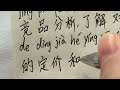 竞品分析,了解
de dìng jià hé yíng
的定价和